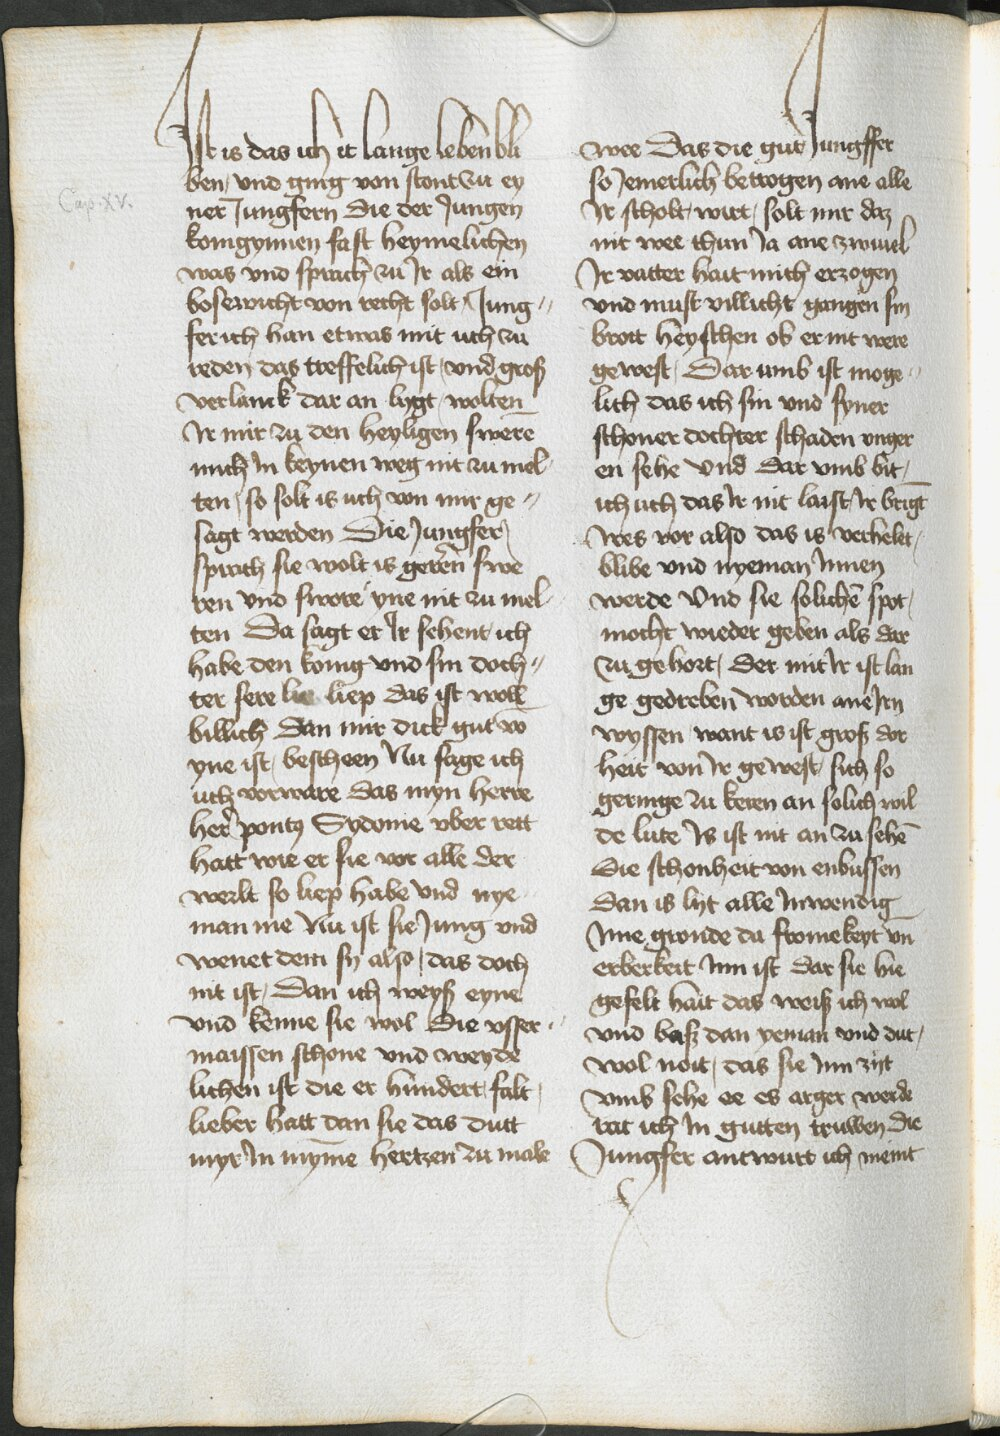 Cap. XV.
Ist is das ich it lange leben bli
ben / vnd ging von stont zu ey
ner Jungfern Die der Jungen
konigynnen fast heymelichen
was vnd sprach zu Ir als ein
bosewicht von recht solt / Jung„
fer ich han etwas mit uch zu
reden das treffelich ist / vnd groß
verlanck dar an lygt / wolten
Ir mir zu den heyligen swerē
mich In keynen weg nit zu mel
ten / so solt is uch von mir ge„
sagt werden Die Jungfer
sprach sie wolt is geren swe
ren vnd swore yne nit zu mel
ten Da sagt er Ir sehent ich
habe den konig vnd sin doch„
ter sere liep das ist woll
billich Dan mir dick gut vō
yne ist / bescheen Nu sage ich
uch vorware Das myn herre
her pontus Sydonie vber rett
hatt wie er sie vor alle der
werlt so liep habe vnd nye
man me Nu ist sie Jung vnd
wenet dem sy also / das doch
nit ist / Dan ich weyß eyne
vnd kenne sie wol Die vsser„
maissen schone vnd weyde
lichen ist die er hundert falt
lieber hatt dan sie das dutt
myr In myme hertzen zu male
wee Das die gut Jungffer
so Jemerlich betrogen ane alle
Ir scholt wirt / solt mir daz
nit wee thun Ja ane zwiuel
Ir vatter hait mich erzogen
vnd must villicht gangen sin
broit heyschen ob er nit were
gewest / Dar umb ist moge„
lich das ich sin vnd syner
schoner dochter schaden vnger
en sehe Vnd dar vmb bit /
ich uch das Ir nit laist Ir brīgt
wes vor also das is verhelet /
blibe vnd nyeman Innen
werde Vnd sie solichē spot /
mocht wieder geben als dar
zu gehort / Der mit Ir ist lan
ge gedreben worden ane Irn
wyssen want is ist groß dor
heit von Ir gewest / sich so
geringe zu keren an solich wil
de lute Is ist nit an zu sehē
Die schonheit von enbussen
Dan is lyt alle Inwendig
Ime gronde da fromekeyt vn
erberkeit Inn ist dar sie hie
gefelt hait das weiß ich wol
vnd baß dan yeman vnd dut /
wol noit / das sie Inn zijt
vmb sehe ee es arger werde
rat ich In gutten truwen Die
Jungfer antwurt ich meint